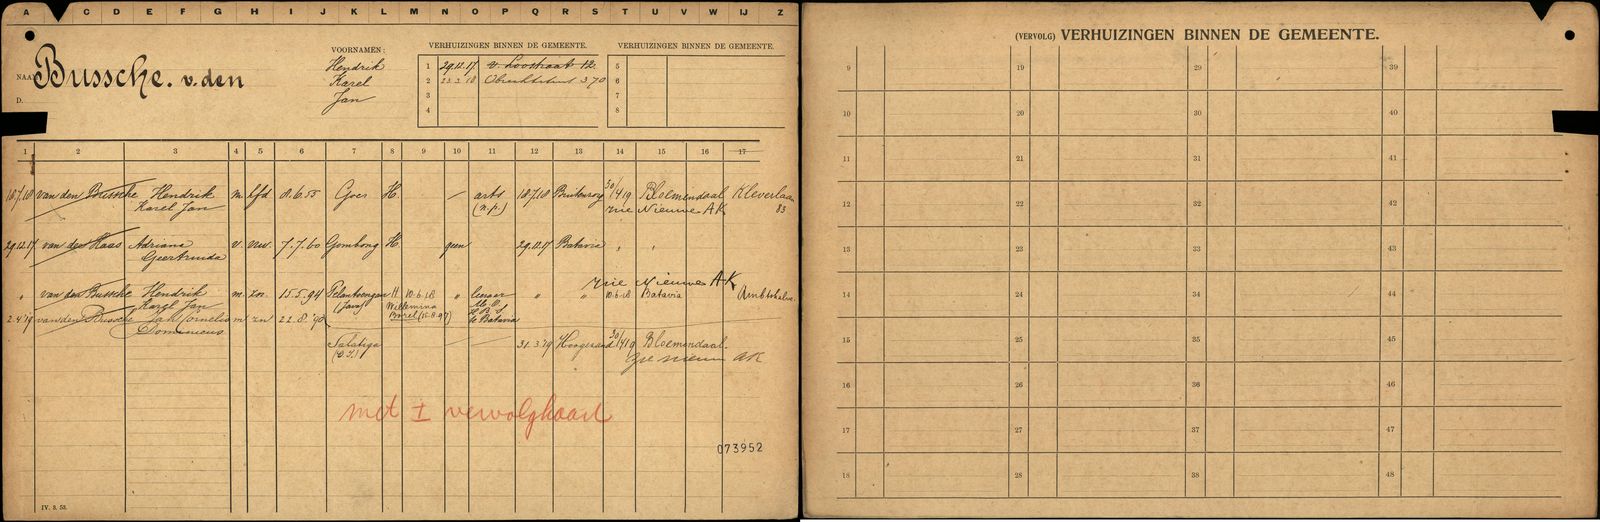 A C D E F G H I J K L M N O P Q R S T U V W IJ Z
NAAM
Bussche. v. den
D.
VOORNAMEN:
Hendrik
Karel
Jan
VERHUIZINGEN BINNEN DE GEMEENTE.
1 29.12.17 v. Loostraat 12.
2 23.2.18 Obrechtstraat 370
3
4
VERHUIZINGEN BINNEN DE GEMEENTE.
5
6
7
8
1 2 3 4 5 6 7 8 9 10 11 12 13 14 15 16 17
18.7.18 van den Bussche Hendrik m. hfd 8.6.55 Goes H. — arts 18.7.18 Buitenzorg 30/4 19 Bloemendaal Kleverlaan
Karel Jan (n.p.) zie Nieuwe AK 83
29.12.17 van der Haas Adriana v. vrw. 7.7.60 Gombong H. geen 29.12.17 Batavia " "
Geertruida
zie Nieuwe AK
" van den Bussche Hendrik m. zn. 15.5.94 Pelantoengan H. 10.6.18 " leeraar " " 10.6.18 Batavia Ambtshalve.
Karel Jan (Java) Wilhelmina M.O.
Borel (15.8.97) H.B.S.
te Batavia
2.4.19 van den Bussche Jan Cornelis m zn 21.8.90
Dominicus
Salatiga — — 31.3.19 Hoogezand 30/4 19 Bloemendaal.
(O.I.) Zie nieuw AK
met 1 vervolgkaart
073952
IV. 3. 53.
(VERVOLG) VERHUIZINGEN BINNEN DE GEMEENTE.
9 19 29 39
10 20 30 40
11 21 31 41
12 22 32 42
13 23 33 43
14 24 34 44
15 25 35 45
16 26 36 46
17 27 37 47
18 28 38 48